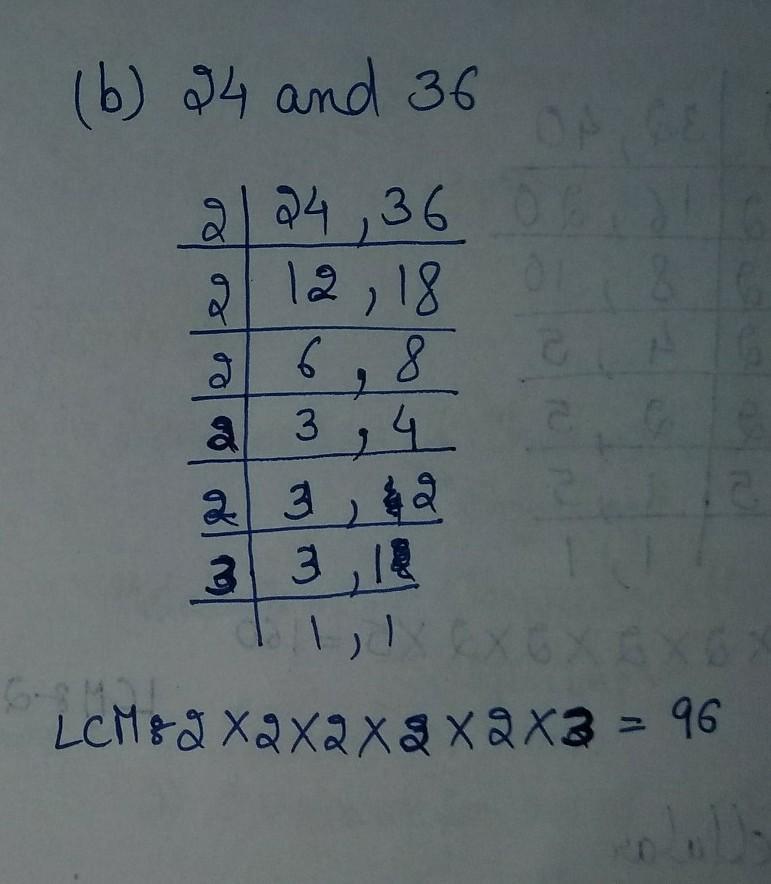 (b) 24 and 36
2 | 24 , 36
2 | 12 , 18
2 | 6 , 8
2 | 3 , 4
2 | 3 , 2
3 | 3 , 1
1 , 1
LCM :- 2 × 2 × 2 × 2 × 2 × 3 = 96